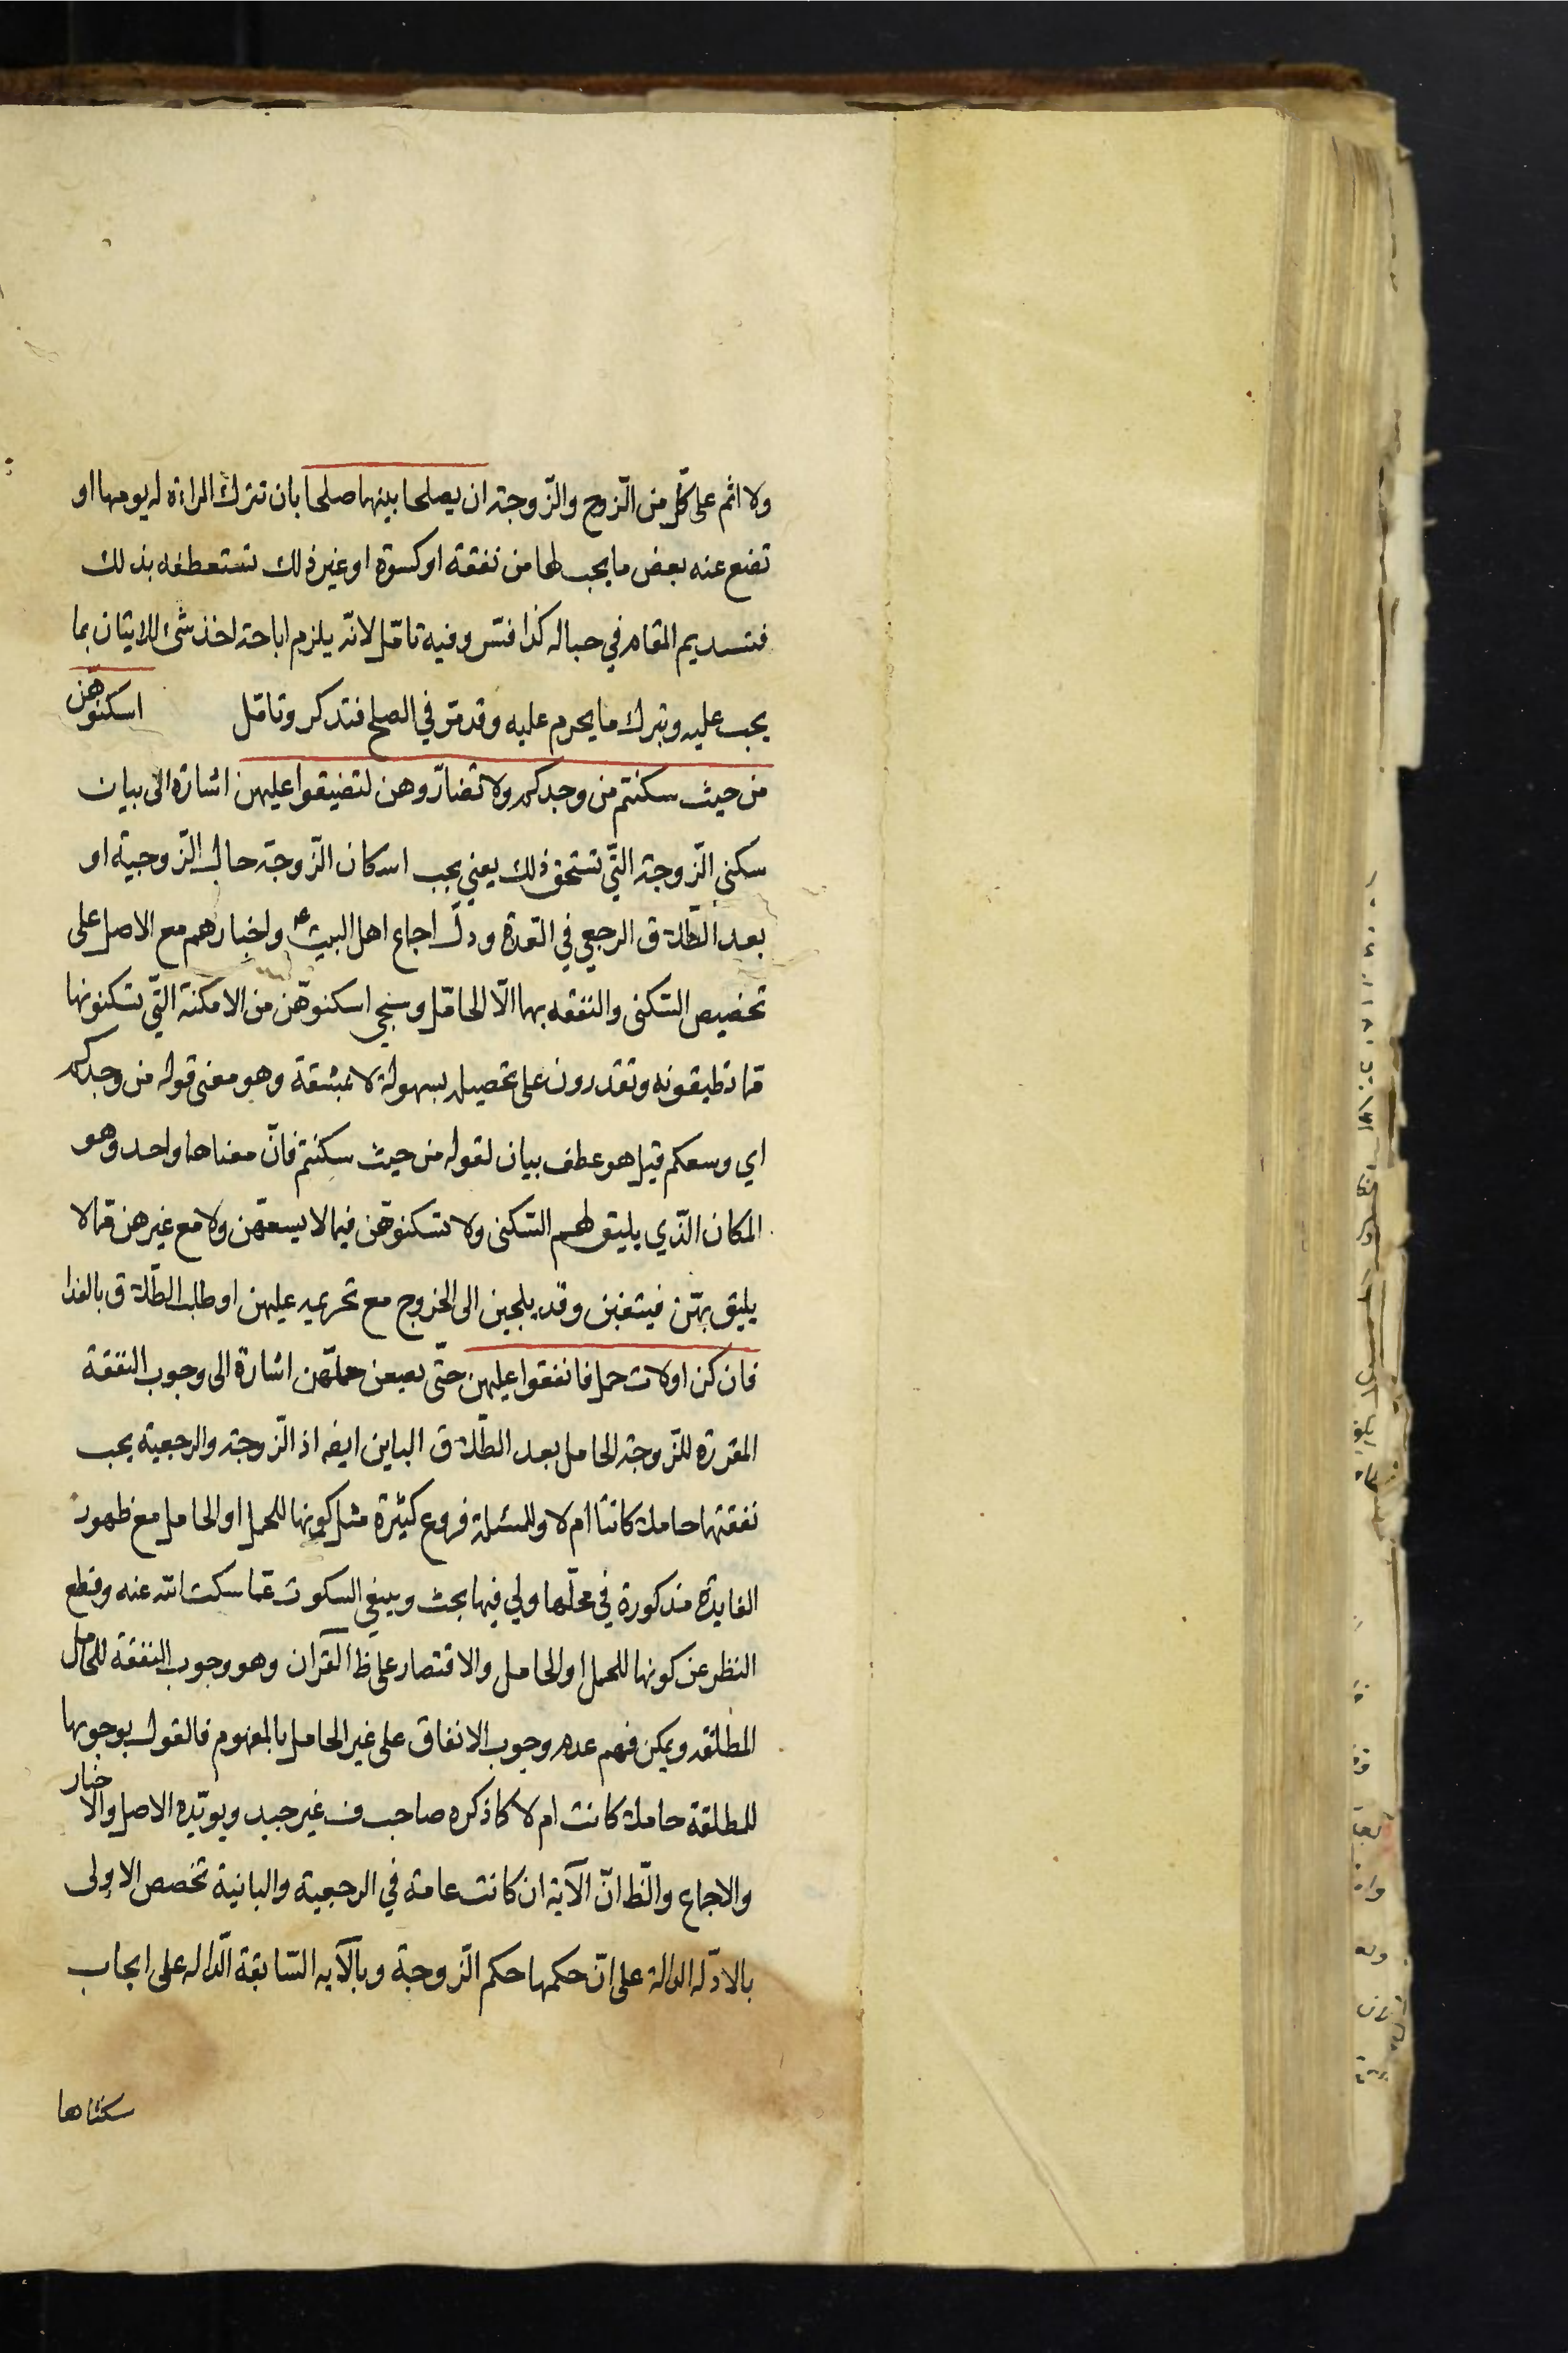 ولا اثم على كل من الزوج والزوجة ان يصلحا بينهما صلحا بان تترك المراءة له يومها او
تضع عنه بعض ما يجب لها من نفقة او كسوة او غير ذلك تستعطفه بذلك
فتستديم المقام في حباله كذا فسّر وفيه تامّل لانّه يلزم اباحة اخذ شئ للاتيان بما
يجب عليه وبترك ما يحرم عليه وقد مرّ في الصلح فتذكر وتامّل اسكنوهنّ
من حيث سكنتم من وجدكم ولا تضارّوهن لتضيقوا عليهن اشارة الى بيان
سكنى الزّوجة الّتي تستحق ذلك يعني يجب اسكان الزّوجة حال الزّوجية او
بعد الطّلاق الرجعي في العدة ودلّ اجماع اهل البيت ع واخبارهم مع الاصل على
تخصيص السّكنى والنفقه بها الّا الحامل وسيجي اسكنوهّن من الامكنة الّتي تسكنونها
ممّا تطيقونه وتقدرون على تحصيله بسهولة لا بمشقة وهو معنى قوله من وجدكم
اي وسعكم قيل هو عطف بيان لقوله من حيث سكنتم فانّ معناهما واحد وهو
المكان الّذي يليق لهم السّكنى ولا تسكنوهّن فيما لا يسعهّن ولا مع غيرهن ممّا لا
يليق بهّن فيتغبن وقد يلجين الى الخروج مع تحريمه عليهن او طلب الطّلاق بالفدا
فان كن اولات حمل فانفقوا عليهن حتّى يضعن حملهّن اشارة الى وجوب النفقة
المقررة للزّوجة الحامل بعد الطّلاق الباين ايضه اذ الزّوجة والرجعية يجب
نفقتهما حاملا كانتا ام لا وللمسئلة فروع كثيرة مثل كونها للحمل او الحامل مع ظهور
الفايدة مذكورة في محلّها ولي فيها بحث وينبغي السكوت عمّا سكت الله عنه وقطع
النظر عن كونها للحمل او الحامل والاقتصار على ظ القرآن وهو وجوب النفقة للحامل
المطلقه ويمكن فهم عدم وجوب الانفاق على غير الحامل بالمفهوم فالقول بوجوبها
للمطلقة حاملا كانت ام لا كما ذكره صاحب ف غير جيد ويويّده الاصل والاخبار
والاجماع والّظ انّ الآية ان كانت عامة في الرجعية والبانية تخصص الاولى
بالادّله الدالة على انّ حكمها حكم الزّوجة وبالآيه السّابقة الدّاله على ايجاب
سكناها